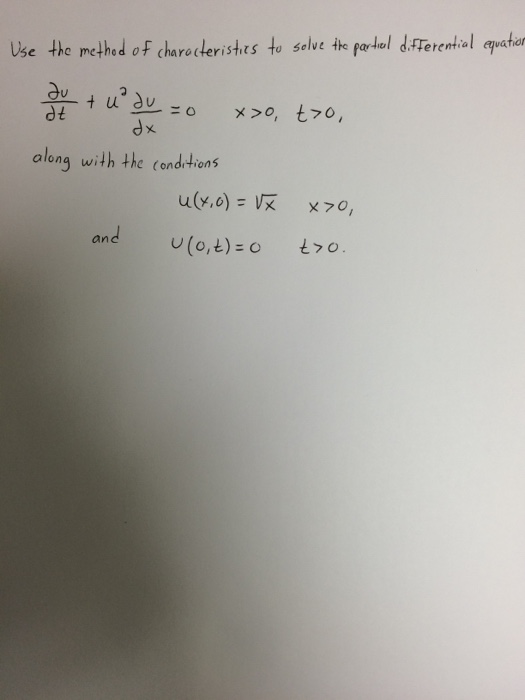 Use the method of characteristics to solve the partial differential equation
∂u/∂t + u² ∂u/∂x = 0 x>0, t>0,
along with the conditions
u(x,0) = √x x>0,
and u(0,t)=0 t>0.